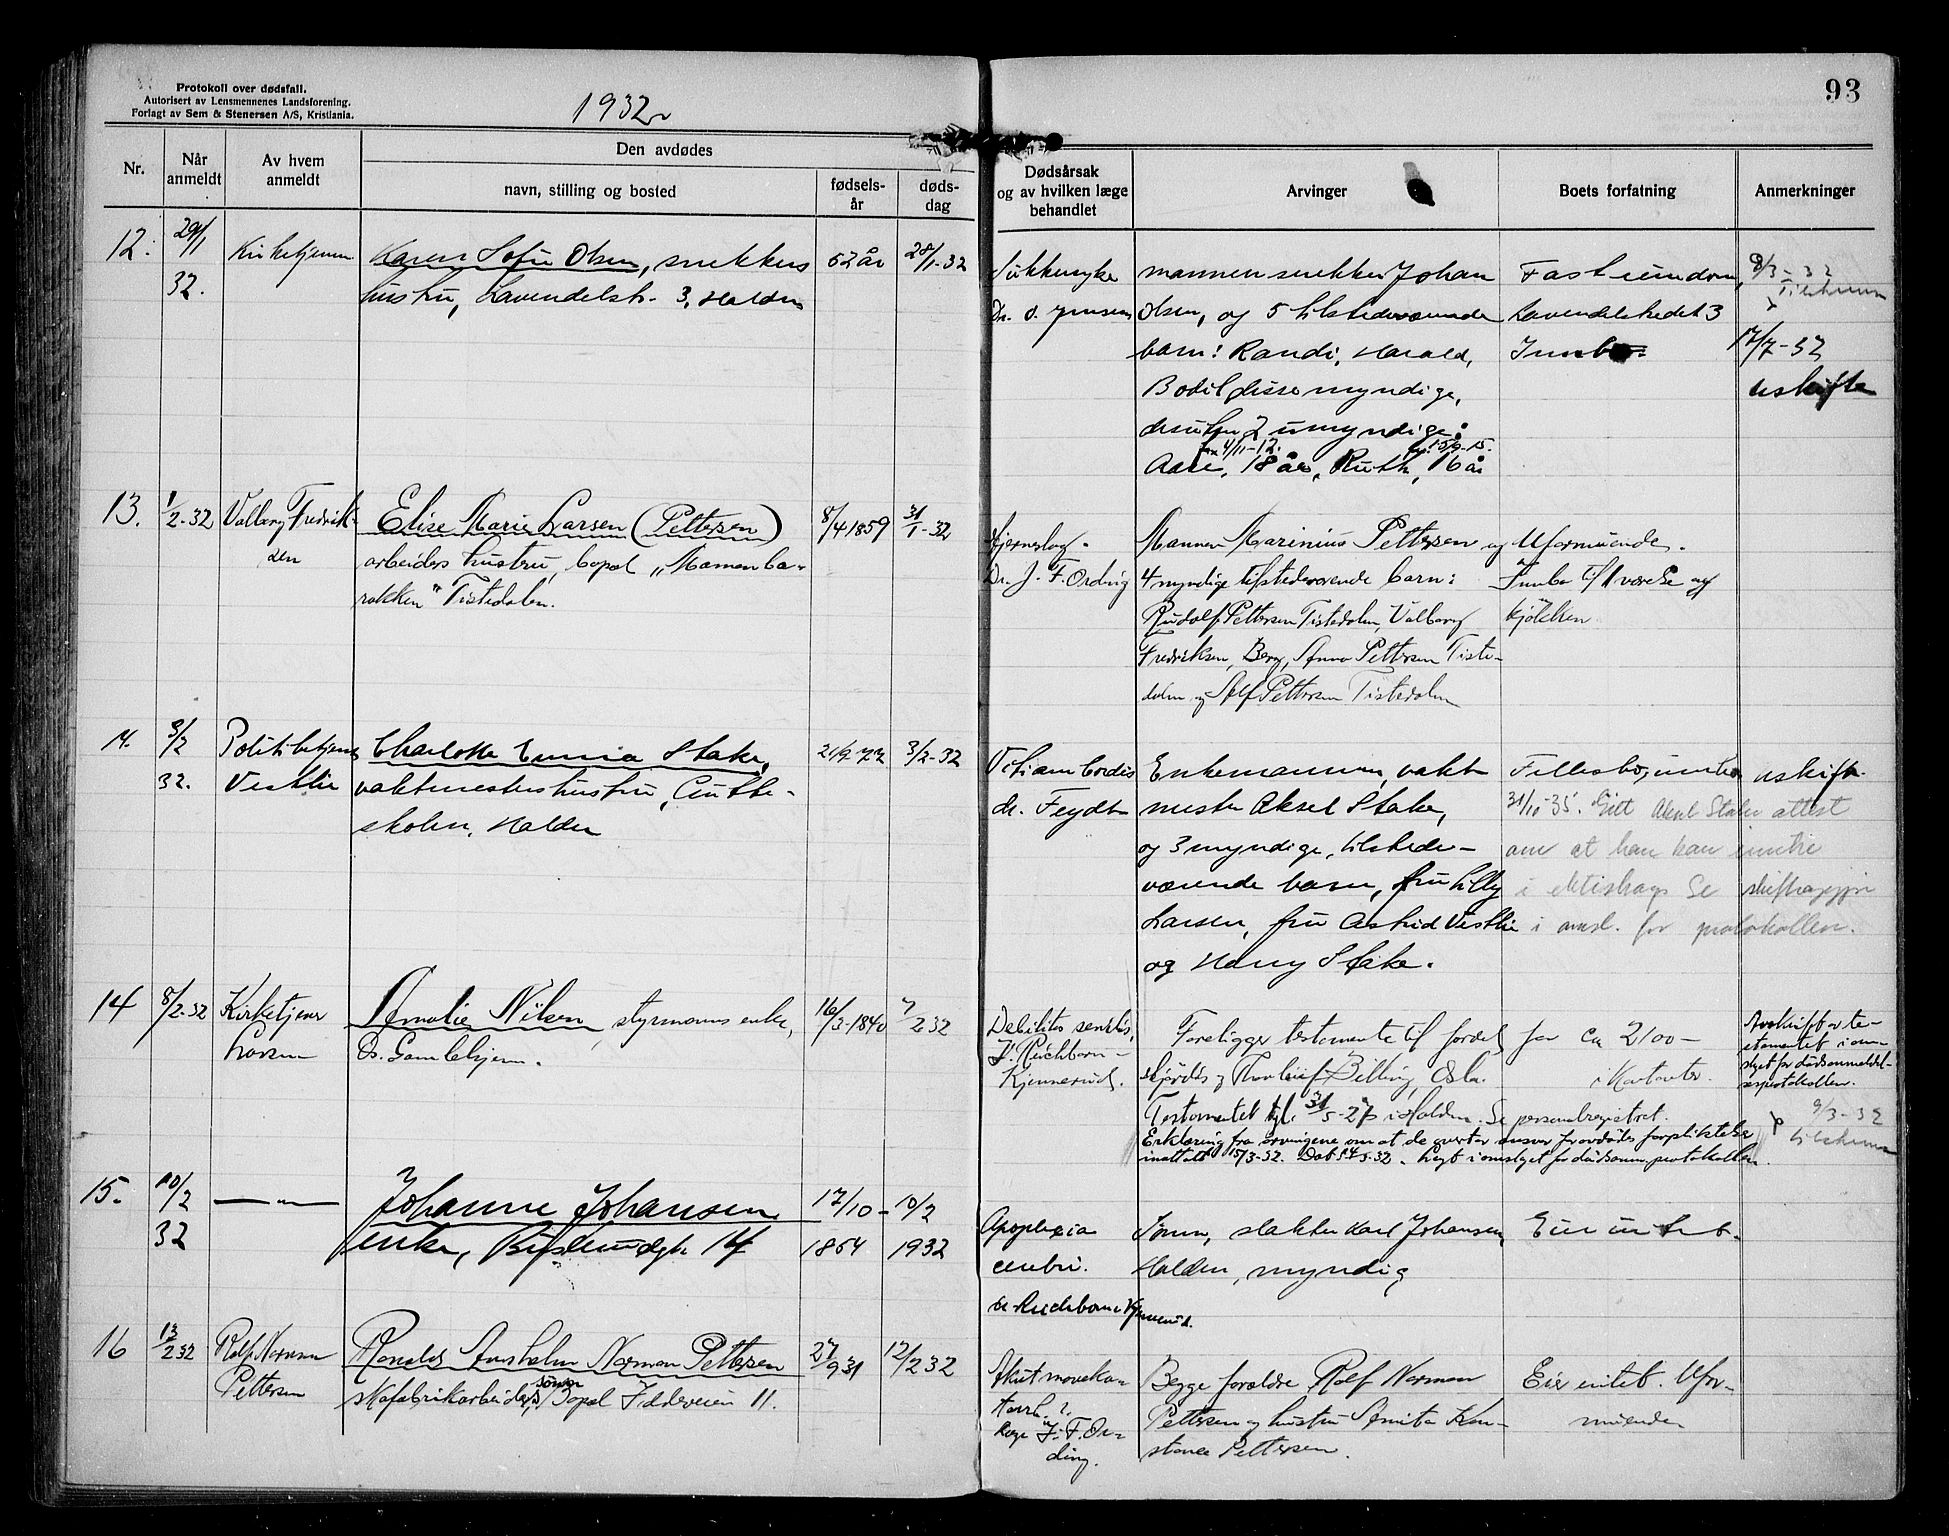 Protokoll over dødsfall.
Autorisert av Lensmennenes Landsforening.
Forlagt av Sem & Stenersen A/S, Kristiania.
1932
93
Nr.
Når anmeldt
Av hvem anmeldt
Den avdødes
navn, stilling og bosted
fødsels-år
døds-dag
Dødsårsak og av hvilken læge behandlet
Arvinger
Boets forfatning
Anmerkninger
12.
29/1
32.
Kirketjeneren
Karen Sofie Olsen, snekkers
hustru, Lavendelstr. 3, Halden
52 år
28/1-32
Sukkersyke
Dr. O. Jensen
mannen snekker Johan
Olsen, og 5 tilstedeværende
barn: Randi, Harald,
Bodil disse myndige,
desuten 2 umyndige:
Aase, 18 år, Ruth, 16 år
Fast eiendom,
Lavendelstredet 3
Innbo.
8/3-32
17/7-32
uskifte
13.
1/2-32
Valborg Fredrik-
sen
Elise Marie Larsen (Pettersen)
arbeiders hustru, bopel "Momenba-
rakken" Tistedalen.
8/4 1859
31/1-32
Hjerneslag.
Dr. J. F. Ording
Mannen Marinius Pettersen og
4 myndige tilstedeværende barn:
Rudolf Pettersen Tistedalen, Valborg
Fredriksen, Berg, Anna Pettersen Tiste-
dalen og Alf Pettersen Tistedalen
Uformuende.
Innbo til 1 værelse og
kjøkken
14.
9/2
32.
Politibetjent
Vestlie
Charlotte Emma Stake,
vaktmesterhustru, Gutte-
skolen, Halden
3/2-32
Vitium Cordis
dr. Feydt
Enkemannen, vakt-
mester Aksel Stake,
og 3 myndige, tilstede-
værende barn, fru Lilly
Larsen, fru Astrid Vestlie
og Harry Stake.
Fellesbo,
31/10-35. Gitt Aksel Stake attest
om at han kan
i Se
i omsl. for protokollen.
uskifte.
14
8/2-32
Kirketjener
Larsen
Amalie Nilsen, styrmanns enke,
Os Gamlehjem.
16/3-1840
7/2 32
Debilitas senilis,
Kjennerud.
Foreligger testamente til fordel
Hjördis og Thorleif Billing, Oslo.
Testamentet dgt. 31/5-27 i Halden. Se personalregistret.
Erklæring fra arvingene om at de overtar ansvar for avdødes forpliktelser
inntatt 15/3-32. Lagt i omslaget for dödsanm.protokollen.
for ca 2100 -
i kontanter.
Avskrift av te-
stamentet i om-
slget for dødsanmeldel-
sesprotokollen.
9/3-32
15.
10/2
32
— " —
Johanne Johansen
enke, 14
17/10-
1854
10/2
1932
Apoplexia
cerebri.
Sönn, slakter Karl Johansen,
Halden, myndig
Eier intet.
16
13/2 32
Rolf Norman
Pettersen
Ronald Norman Pettersen
skofabrikarbeiders sönn, Bopel Iddeveien 11.
27/9 31
12/2 32
Akut maveka-
tarrh. ?
Læge J. F. Or-
ding.
Begge foreldre Rolf Norman
Pettersen og hustru Anita Kon-
stance Pettersen.
Eier intet. Ufor-
muende